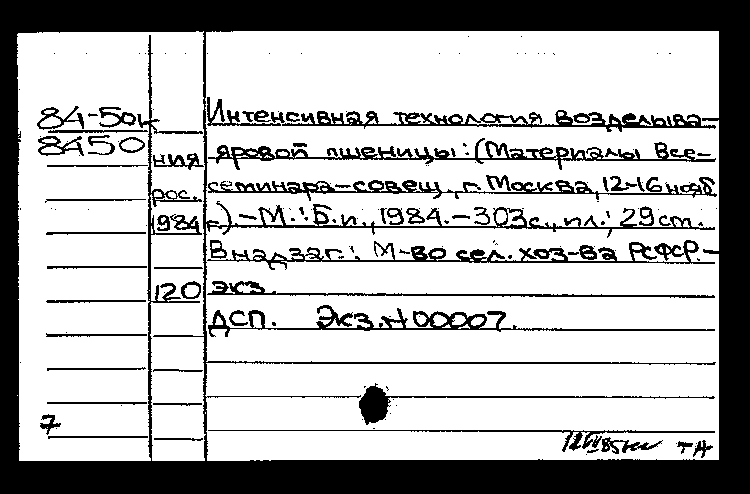 84-50к Интенсивная технология возделыва-
8450 ния яровой пшеницы: (Материалы Все-
рос. семинара-совещ., г. Москва, 12-16 нояб.
1984 г.)-М.: Б.и., 1984.-303с., ил.; 29 см.
В надзаг.: М-во сел. хоз-ва РСФСР.-
120 экз.
ДСП. Экз. N 00007.
7
ТН